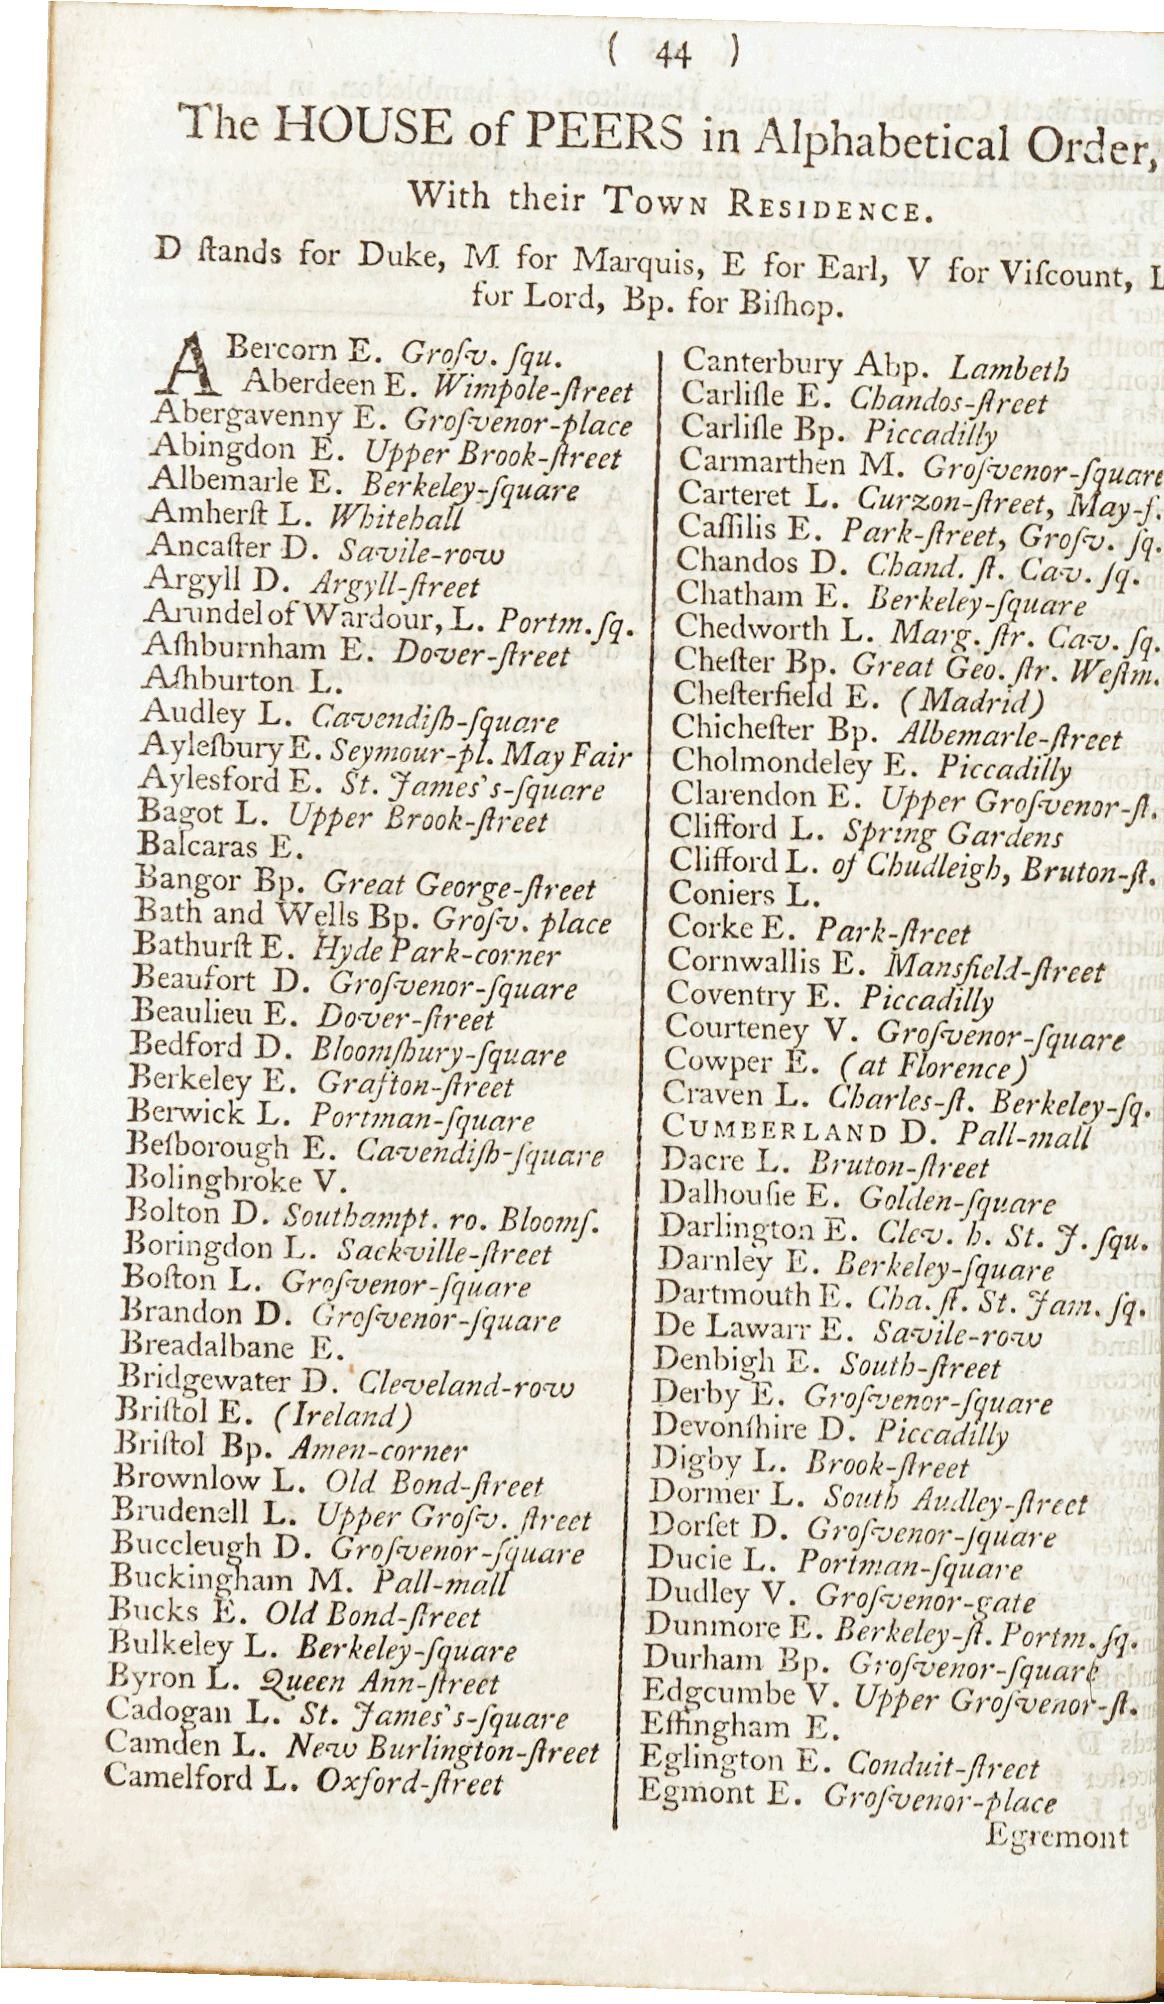 ( 44 )
The HOUSE of PEERS in Alphabetical Order,
With their TOWN RESIDENCE.
D ſtands for Duke, M for Marquis, E for Earl, V for Viſcount, L
for Lord, Bp. for Biſhop.
ABercorn E. Groſv. ſqu.
Aberdeen E. Wimpole-ſtreet
Abergavenny E. Groſvenor-place
Abingdon E. Upper Brook-ſtreet
Albemarle E. Berkeley-ſquare
Amherſt L. Whitehall
Ancaſter D. Savile-row
Argyll D. Argyll-ſtreet
Arundel of Wardour, L. Portm. ſq.
Aſhburnham E. Dover-ſtreet
Aſhburton L.
Audley L. Cavendiſh-ſquare
Ayleſbury E. Seymour-pl. May Fair
Aylesford E. St. James's-ſquare
Bagot L. Upper Brook-ſtreet
Balcaras E.
Bangor Bp. Great George-ſtreet
Bath and Wells Bp. Groſv. place
Bathurſt E. Hyde Park-corner
Beaufort D. Groſvenor-ſquare
Beaulieu E. Dover-ſtreet
Bedford D. Bloomſbury-ſquare
Berkeley E. Grafton-ſtreet
Berwick L. Portman-ſquare
Beſborough E. Cavendiſh-ſquare
Bolingbroke V.
Bolton D. Southampt. ro. Bloomſ.
Boringdon L. Sackville-ſtreet
Boſton L. Groſvenor-ſquare
Brandon D. Groſvenor-ſquare
Breadalbane E.
Bridgewater D. Cleveland-row
Briſtol E. (Ireland)
Briſtol Bp. Amen-corner
Brownlow L. Old Bond-ſtreet
Brudenell L. Upper Groſv. ſtreet
Buccleugh D. Groſvenor-ſquare
Buckingham M. Pall-mall
Bucks E. Old Bond-ſtreet
Bulkeley L. Berkeley-ſquare
Byron L. Queen Ann-ſtreet
Cadogan L. St. James's-ſquare
Camden L. New Burlington-ſtreet
Camelford L. Oxford-ſtreet
Canterbury Abp. Lambeth
Carliſle E. Chandos-ſtreet
Carliſle Bp. Piccadilly
Carmarthen M. Groſvenor-ſquare
Carteret L. Curzon-ſtreet, May-f.
Caſſilis E. Park-ſtreet, Groſv. ſq.
Chandos D. Chand. ſt. Cav. ſq.
Chatham E. Berkeley-ſquare
Chedworth L. Marg. ſtr. Cav. ſq.
Cheſter Bp. Great Geo. ſtr. Weſtm.
Cheſterfield E. (Madrid)
Chicheſter Bp. Albemarle-ſtreet
Cholmondeley E. Piccadilly
Clarendon E. Upper Groſvenor-ſt.
Clifford L. Spring Gardens
Clifford L. of Chudleigh, Bruton-ſt.
Coniers L.
Corke E. Park-ſtreet
Cornwallis E. Mansfield-ſtreet
Coventry E. Piccadilly
Courteney V. Groſvenor-ſquare
Cowper E. (at Florence)
Craven L. Charles-ſt. Berkeley-ſq.
CUMBERLAND D. Pall-mall
Dacre L. Bruton-ſtreet
Dalhouſie E. Golden-ſquare
Darlington E. Clev. h. St. J. ſqu.
Darnley E. Berkeley-ſquare
Dartmouth E. Cha. ſt. St. Jam. ſq.
De Lawarr E. Savile-row
Denbigh E. South-ſtreet
Derby E. Groſvenor-ſquare
Devonſhire D. Piccadilly
Digby L. Brook-ſtreet
Dormer L. South Audley-ſtreet
Dorſet D. Groſvenor-ſquare
Ducie L. Portman-ſquare
Dudley V. Groſvenor-gate
Dunmore E. Berkeley-ſt. Portm. ſq.
Durham Bp. Groſvenor-ſquare
Edgcumbe V. Upper Groſvenor-ſt.
Effingham E.
Eglington E. Conduit-ſtreet
Egmont E. Groſvenor-place
Egremont